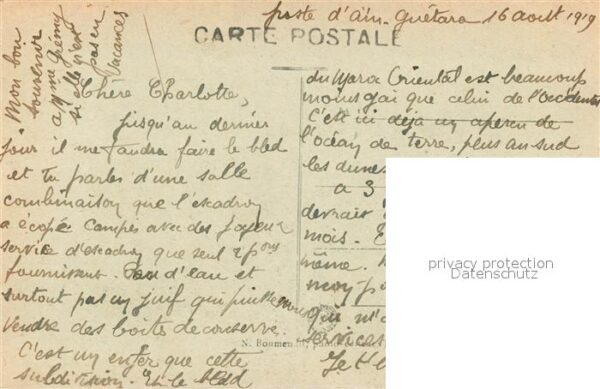 poste d'Aïn-Guettara 16 août 1919
CARTE POSTALE
Mon bon
souvenir
à Mme Grémy
si elle n'est
pas en
vacances
Chère Charlotte,
jusqu'au dernier
jour il me faudra faire le bled
et tu parles d'une salle
combinaison que l'escadron
a écopée Campés avec des
service d'escadron que seul
fournissent. d'eau et
surtout pas un juif qui puisse nous
vendre des boites de conserve.
C'est un enfer que cette
subdivision. Et le bled
du Maroc Oriental est beaucoup
moins gai que celui de l'Occidental
C'est ici déjà un aperçu de
l'océan de terre, plus au sud
les dunes
a 3
devrait
mois.
même.
moy
qui m'
services
Je t'
N. Boumendil,
privacy protection
Datenschutz